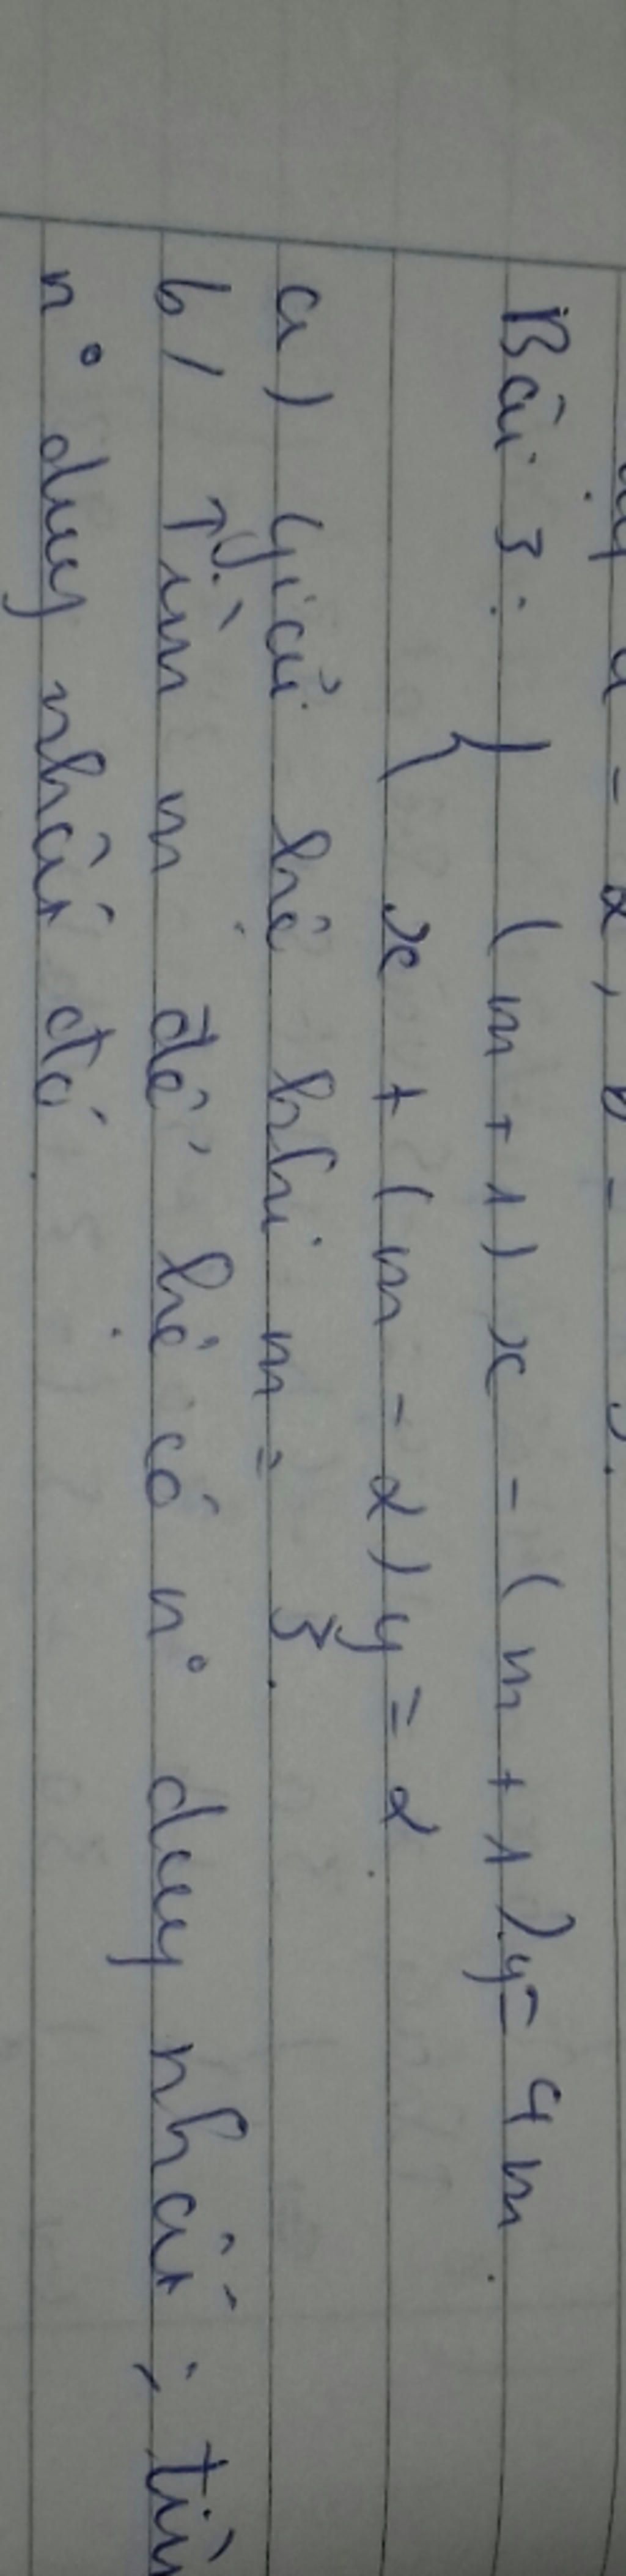 Bài 3: { (m + 1) x - (m + 1) y = 4m
x + (m - 2) y = 2
a) Giải hệ khi m = 3.
b) Tìm m để hệ có n° duy nhất; tìm
n° duy nhất đó.